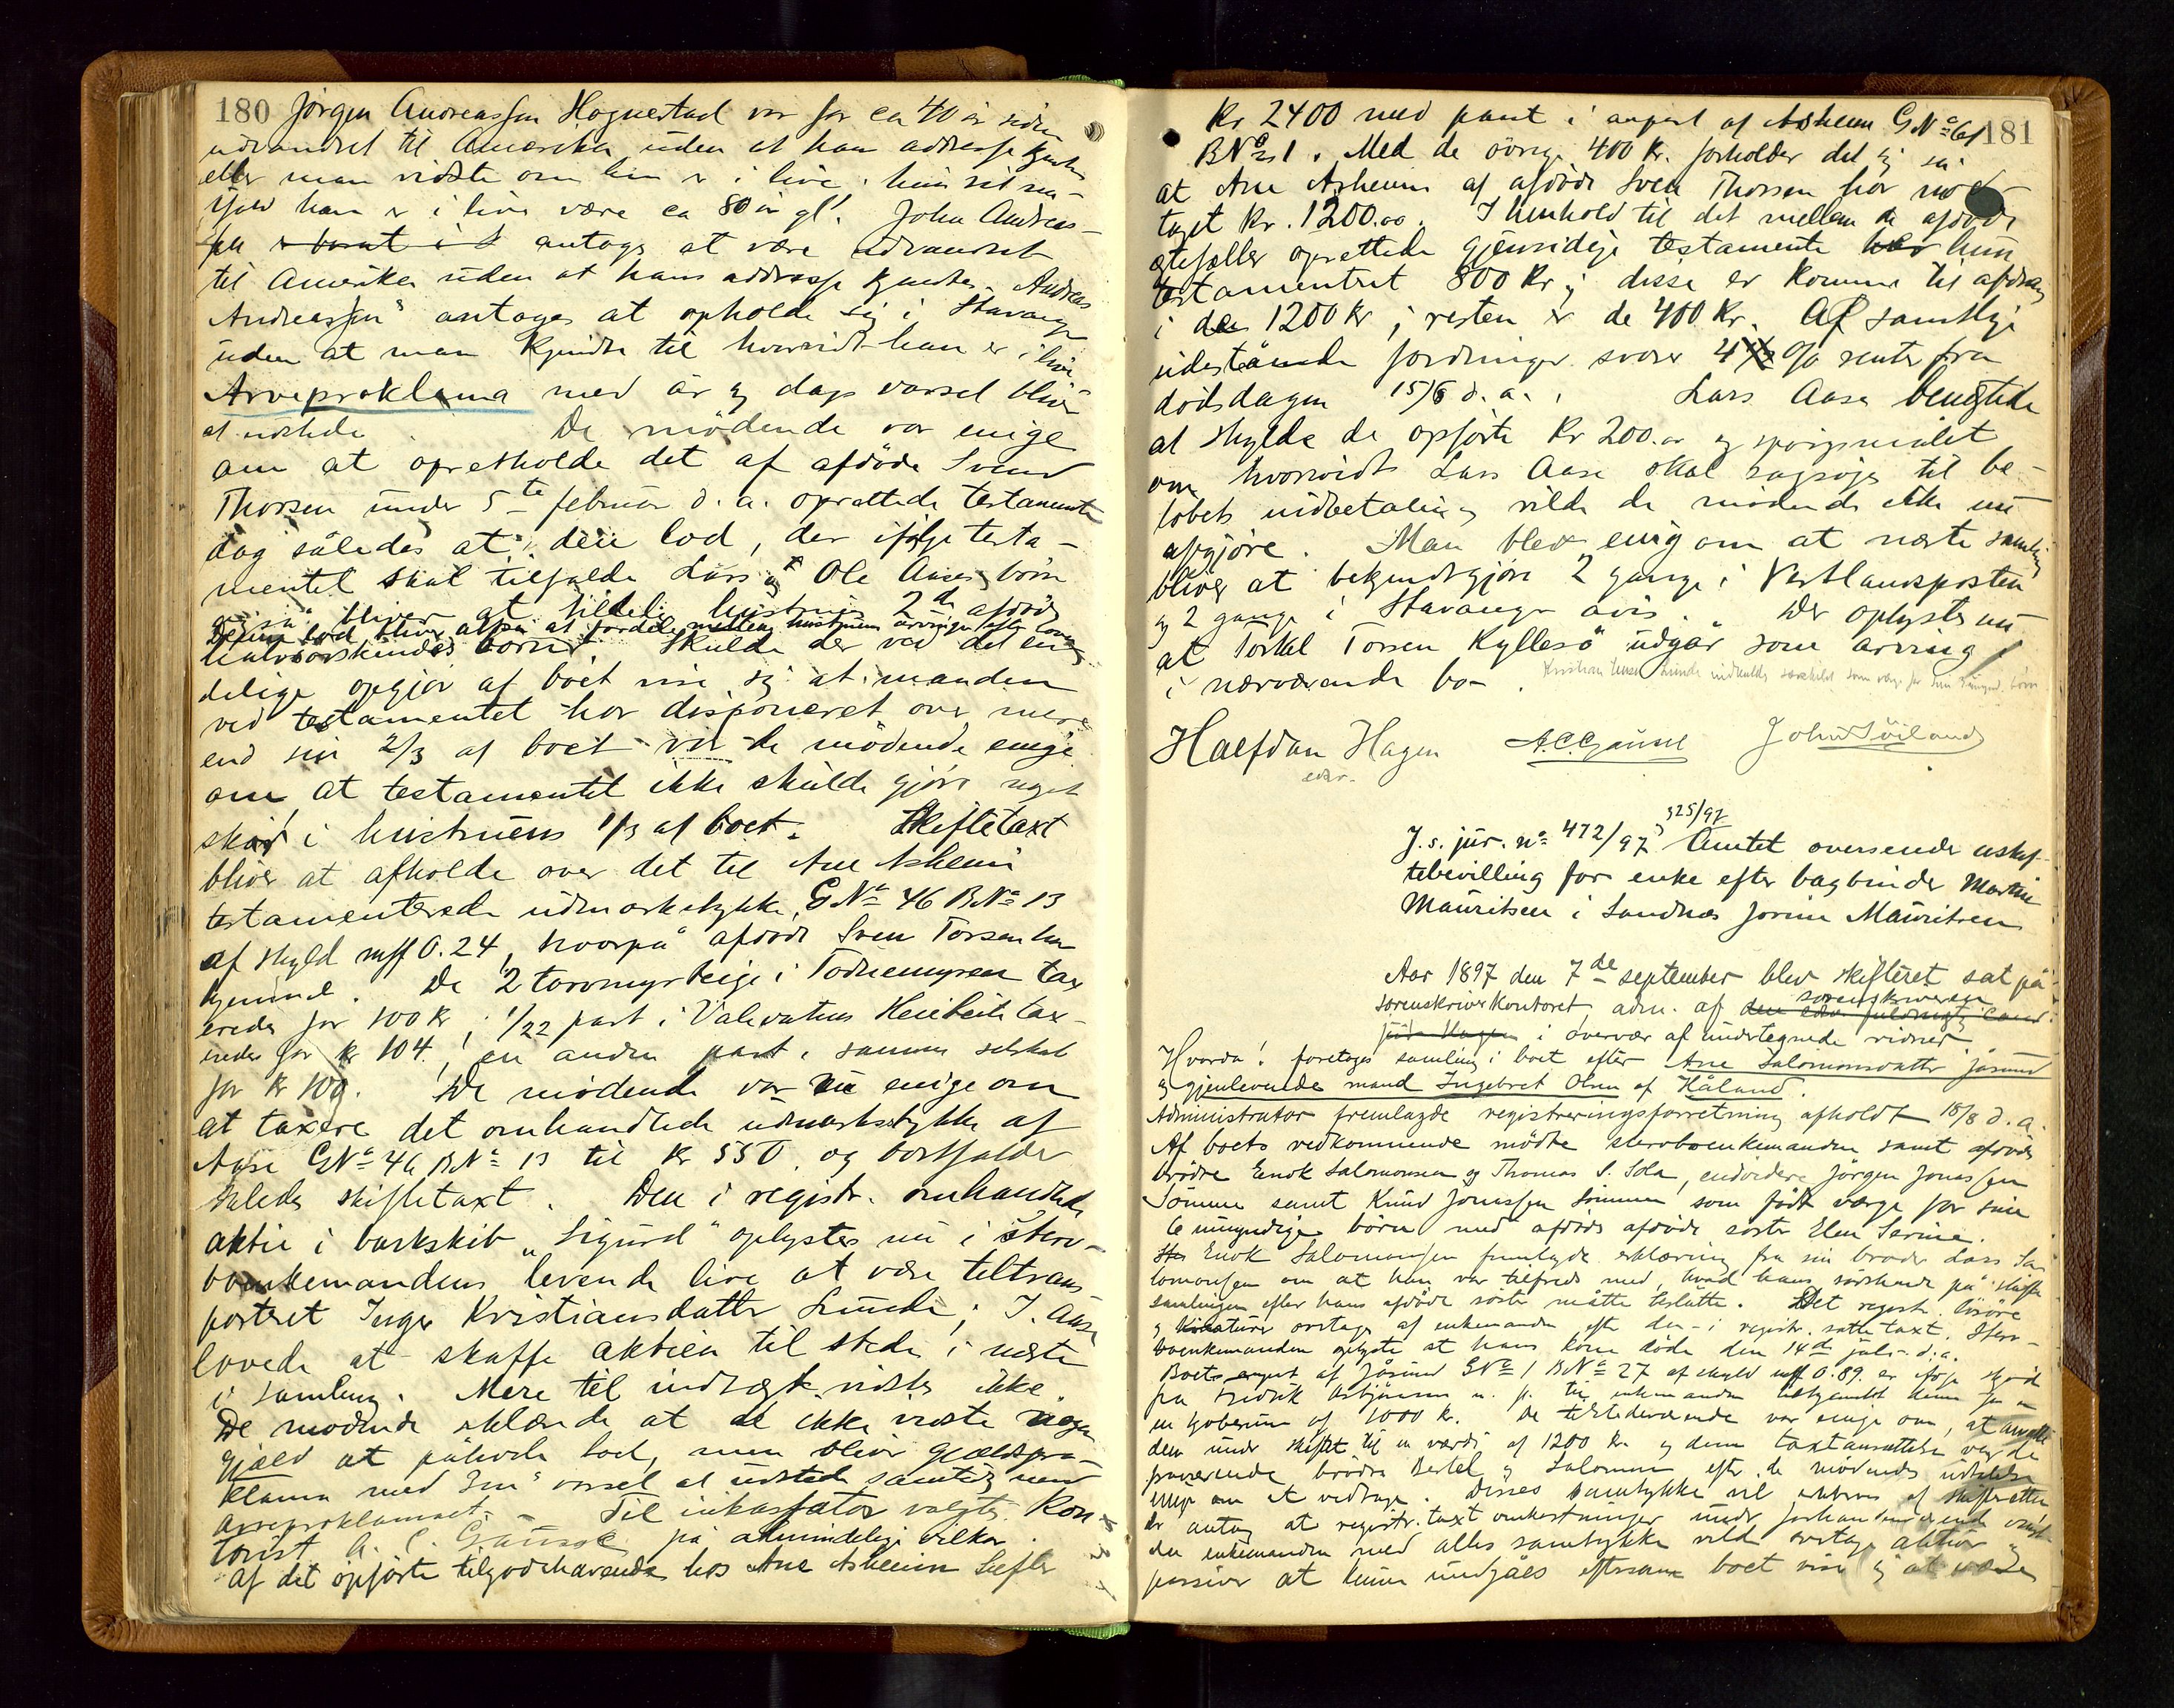 180 Jörgen Andreassen Hognestad var for ca 40 år siden
udvandret til Amerika uden at hans addresse kjendtes
eller man vidste om han er i live; han vil nu
ifald han er i live være ca 80 år gl. John Andreas-
sen antages at være udvandret
til Amerika uden at hans addresse kjendtes. Andreas
Andreassen antages at opholde sig i Stavanger
uden at man kjendte til hvorvidt han er i live
Arveproklama med år og dags varsel bliver
at udstede. De mödende var enige
om at opretholde det af afdöde Svend
Thorsen under 5te februar d. a. oprettede testamente
dog således at den lod, der ifølge testa-
mentet skal tilfalde Lars og Ole Aases börn
bliver at tildele hustruens 2de afdöde
Denne lod bliver altså at fordele mellem hustruens arvinger efter loven
halvsöskendes börn. Skulde der ved det en-
delige opgjör af boet vise sig at manden
ved testamentet har disponeret over mere
end sin 2/3 af boet var de mödende enige
om at testamentet ikke skulde gjöre noget
skår i hustruens 1/3 af boet. Skiftetaxt
bliver at afholde over det til Ane Asheim
testamenterede udmarkstykke, GNo 46 BNo 13
af skyld mff 0.24, hvorpå afdöde Sven Torsen har
hjemmel. De 2 torvmyrteige i Tödnemyren tax
eredes for 100 kr; 1/22 part i Valevatnes Heiebeite tax-
eredes for kr 104; en anden part i samme selskab
for kr 100. De mödende var nu enige om
at taxere det omhandlede udmarksstykke af
Aase GNo 46 BNo 13 til kr 550, og bortfalder
således skiftetaxt. Den i registr. omhandlede
aktie i barkskib "Sigurd" oplystes nu i sterv-
boenkemandens levende live at være tiltrans
porteret Inger Kristiansdatter Lunde; J. Aase
lovede at skaffe aktien til stede i næste
samling. Mere til indtægt vidstes ikke.
De mödende erklærede at de ikke vidste nogen
gjæld at påhvile boet, men bliver gjældspro-
klama med 3 mrs varsel at udstede samtidig med
arveproklamaet. Til inkassator valgtes Kon-
torist A. C. Gausel på almindelige vilkår.
Af det opförte tilgodehavende hos Ane Asheim hefter

181
Kr 2400 med pant i anpart af Asheim GNo 61
BNo 1. Med de övrige 400 kr. forholder det sig så
at Ane Asheim af afdöde Sven Thorsen har mod
taget kr. 1200.00. I henhold til det mellem de afdöde
ægtefæller oprettede gjensidige testamente har hun
testamentret 800 kr; disse er komne til afdrag
i de 1200 kr; resten er de 400 kr. Af samtlige
udestående fordringer svares 4 % renter fra
dödsdagen 15/6 d. a. Lars Aase benegtede
at skylde de opförte kr 200.00 og spörgsmålet
om hvorvidt Lars Aase skal sagsöges til be-
löbets udbetaling vilde de mödende ikke nu
afgjöre. Man blev enig om at næste samling
bliver at bekjendtgjöre 2 gange i Vestlandsposten
og 2 gange i Stavanger avis. Der oplystes nu
at Torkel Torsen Kyllesö udgår som arving
i nærværende bo.
Halfdan Hagen
edsv.
A. C. Gausel
John Söiland

J. s. jur. no 472/97, 325/97 Amtet oversender uskif-
tebevilling for enke efter bagbinder Martin
Mauritsen i Sandnæs Jorine Mauritsen

Aar 1897 den 7de september blev skifteret sat på
sorenskriverkontoret, adm. af sorenskriveren
i overvær af undertegnede vidner
Hvorda! foretoges samling i boet efter Ane Salomonsdatter Jåsund
og gjenlevende mand Ingebret Olsen af Håland.
Administrator fremlagde registreringsforretning afholdt 18/8 d. a.
Af boets vedkommende mödte stervboenkemanden samt afdödes
brödre Enok Salomonsen og Thomas S. Sola, endvidere Jörgen Jonassen
Sömme samt Knud Jonassen Sömme som födt værge for sine
6 umyndige börn med afdödes afdöde söster Elen Serine.
Enok Salomonsen fremlagde erklæring fra sin broder Lars Sa
lomonsen om at han var tilfreds med, hvad hans söskende på skifte
samlingen efter hans afdöde söster måtte beslutte. Det registr. lösöre
og kreaturer overtages af enkemanden efter den i registr. satte taxt. Sterv-
boenkemanden oplyste at hans kone döde den 14de juli d. a.
Boets anpart af Jåsund GNo 1 BNo 27 af skyld mff 0.89. er ifölge skjöde
fra Fredrik Asbjörnsen m. fl. til enkemanden
en kjöbesum af 1000 kr. De tilstedeværende var enige om, at ansætte
den under skiftet til en værdi af 1200 kr. og denne taxtansættelse var de
fraværende brödre Bertel og Salomon efter de mödendes udtalelse
enige om at vedtage. Disses samtykke vil
der antog at registr. taxt omkostninger under forhandværende
der enkemanden med alles samtykke vilde overtage aktiver og
passiver at kunne undgåes eftersom boet viser sig at være